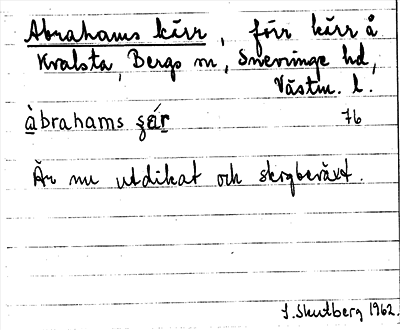 Abrahams kärr, förr kärr å
Kvalsta, Bergs sn, Snevringe hd,
Västm. l.
àbrahams çár 76
Är nu utdikat och skogbeväxt.
S. Skutberg 1962.